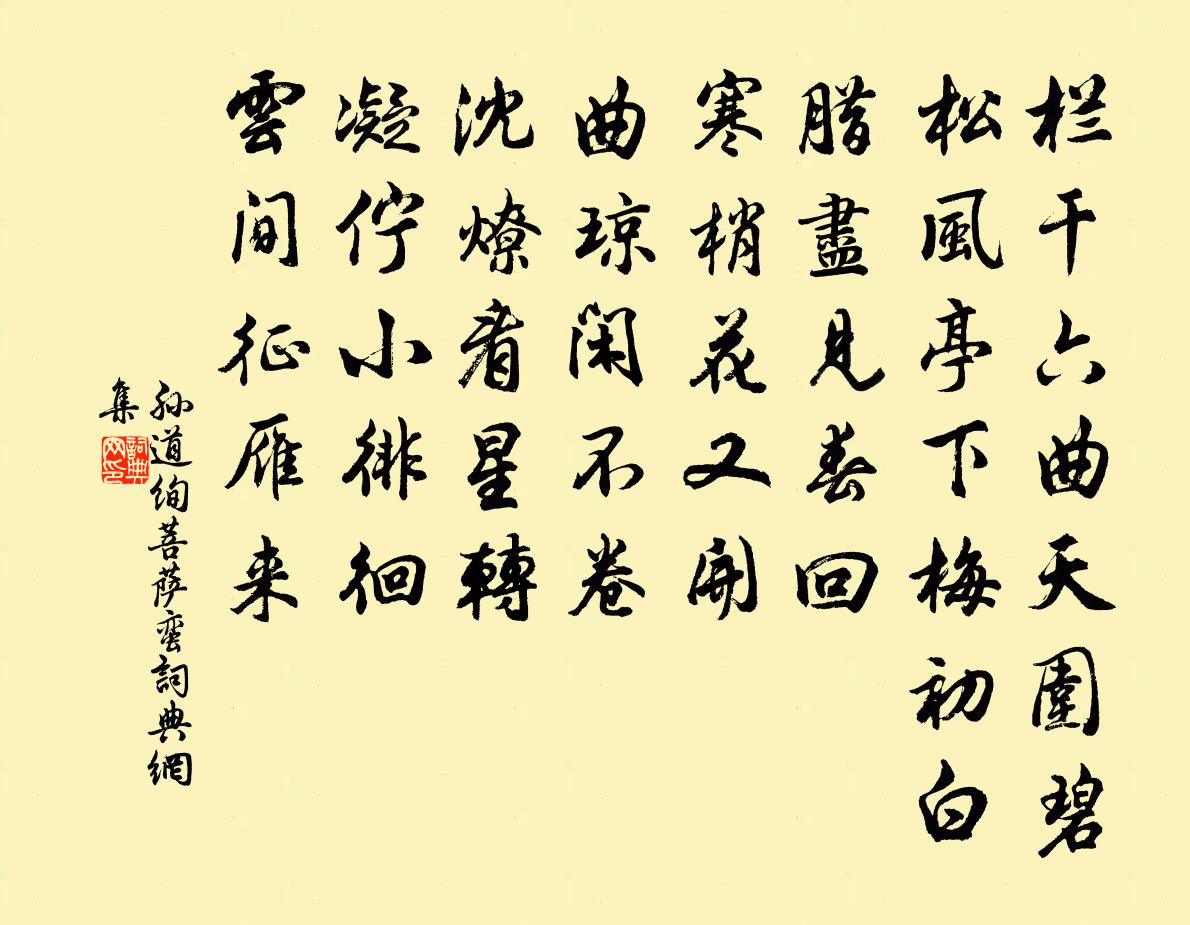 栏干六曲天圍碧
松風亭下梅初白
腊盡見春回
寒梢花又開
曲琼閑不卷
沈燎看星轉
凝佇小徘徊
雲間征雁来
孙道绚菩萨蛮詞典網
集
詞典网印